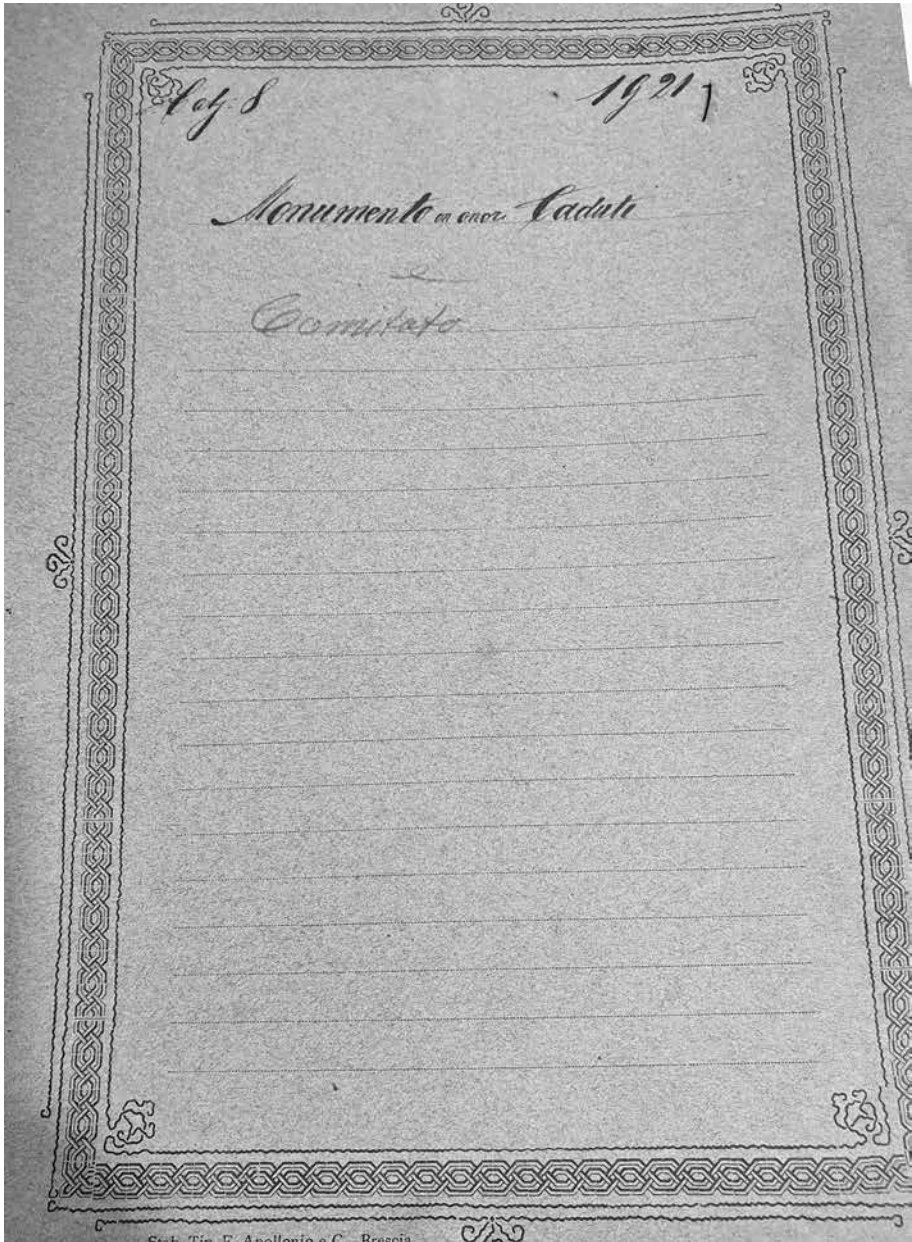 Catg. 8 1921
Monumento in onor. Caduti
e
Comitato
Stab. Tip. F. Apollonio e C. - Brescia